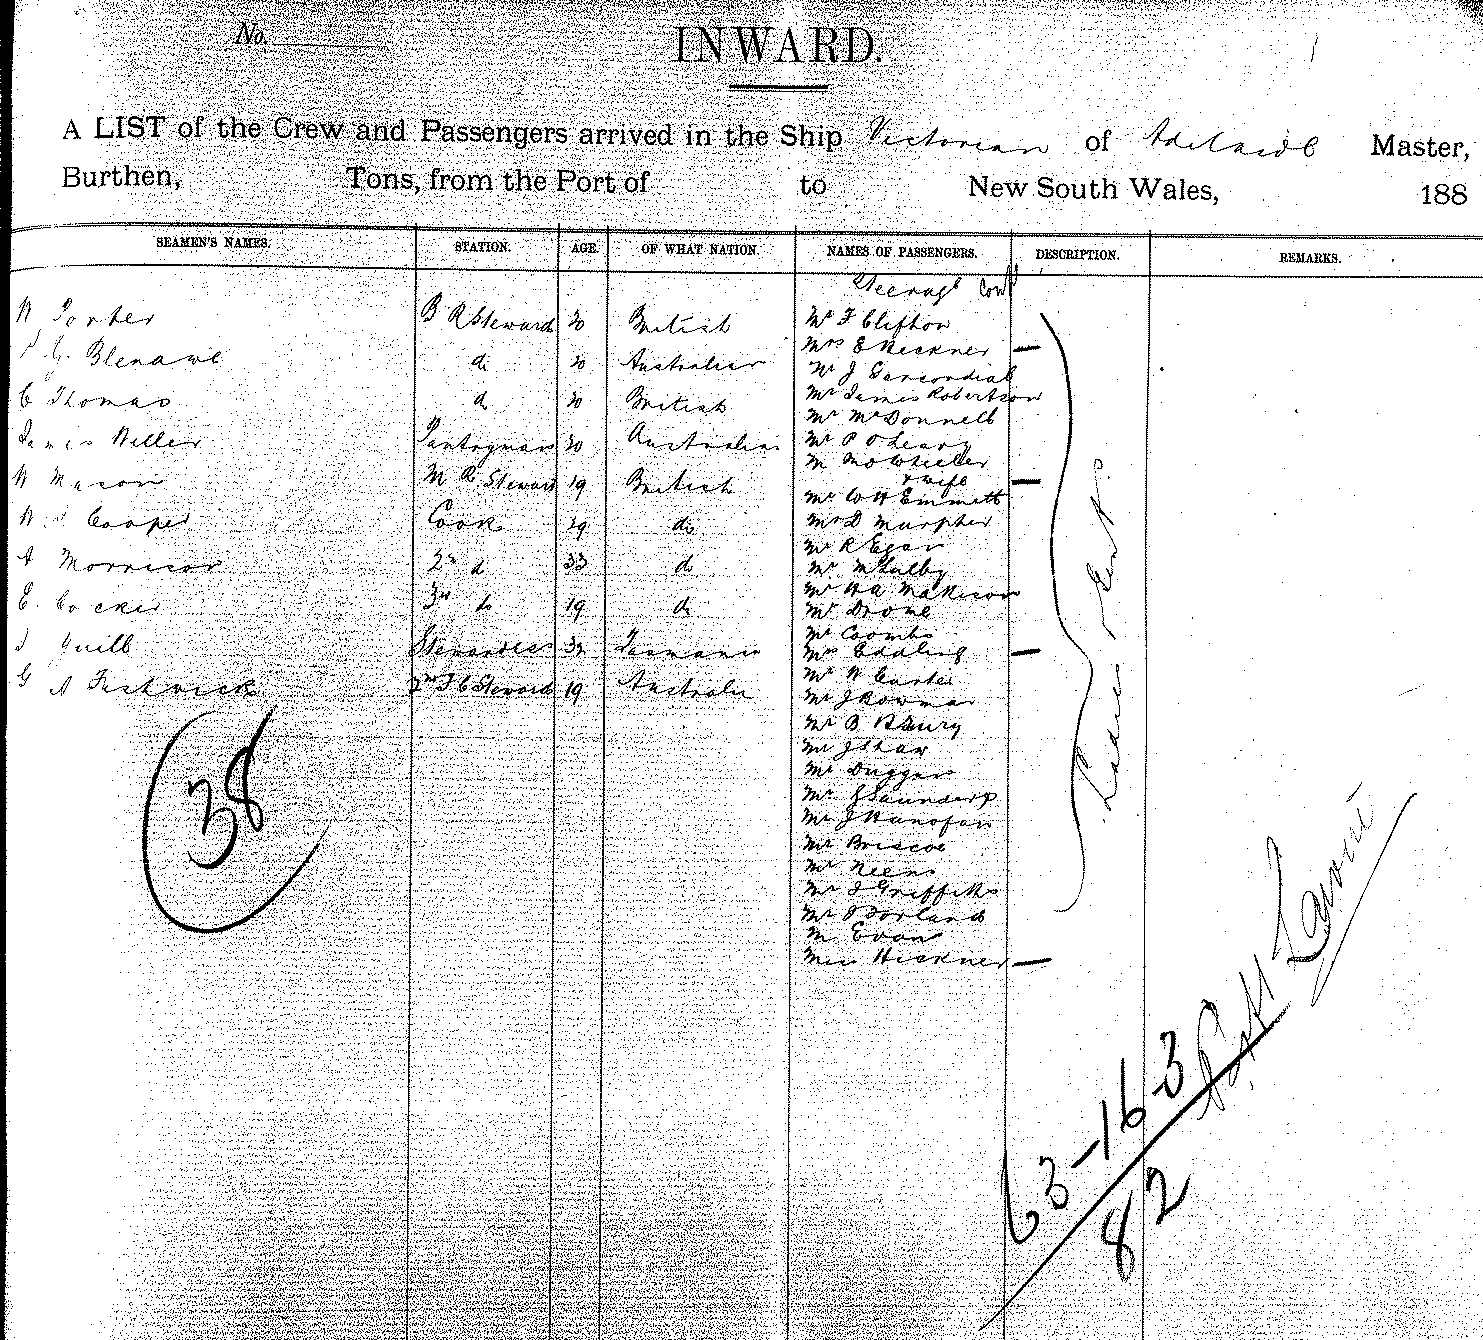 No.
INWARD.
A LIST of the Crew and Passengers arrived in the Ship Victorian of Adelaide Master,
Burthen, Tons, from the Port of to New South Wales, 188
SEAMEN'S NAMES. STATION. AGE. OF WHAT NATION. NAMES OF PASSENGERS. DESCRIPTION. REMARKS.
Steerage Contd
W Porter B R Steward 20 British Mr F Clifton
Blenawe do 20 Australian Mrs E Heckner —
Mr J
C Thomas do 20 British Mr James Robertson
Mr McDonnell
James Miller Pantryman 20 Australian Mr P O'Leary
Mr Wheeler
& wife —
W Mason M R Steward 19 British Mr W H Emmett
W Cooper Cook 29 do Mr D Murpher
Mr R Egan
A Morrison 2nd do 33 do Mr
Mr Makison
E. Cocker 3rd do 19 do Mr Drome
Mr Coombs
J Quill Stewardess 32 Tasmania Mrs —
Mr W Carter
G A Fishwick 2nd F C Steward 19 Australia Mr J Bowman
Mr B
Mr J Shaw
Mr Duggan
Mr J Saunders
Mr J Hanofan
Mr Briscoe
Mr Neens
Mr J Griffiths
Mr Borland
Mr Evans
Miss Heckner —
38
63-16 3
82